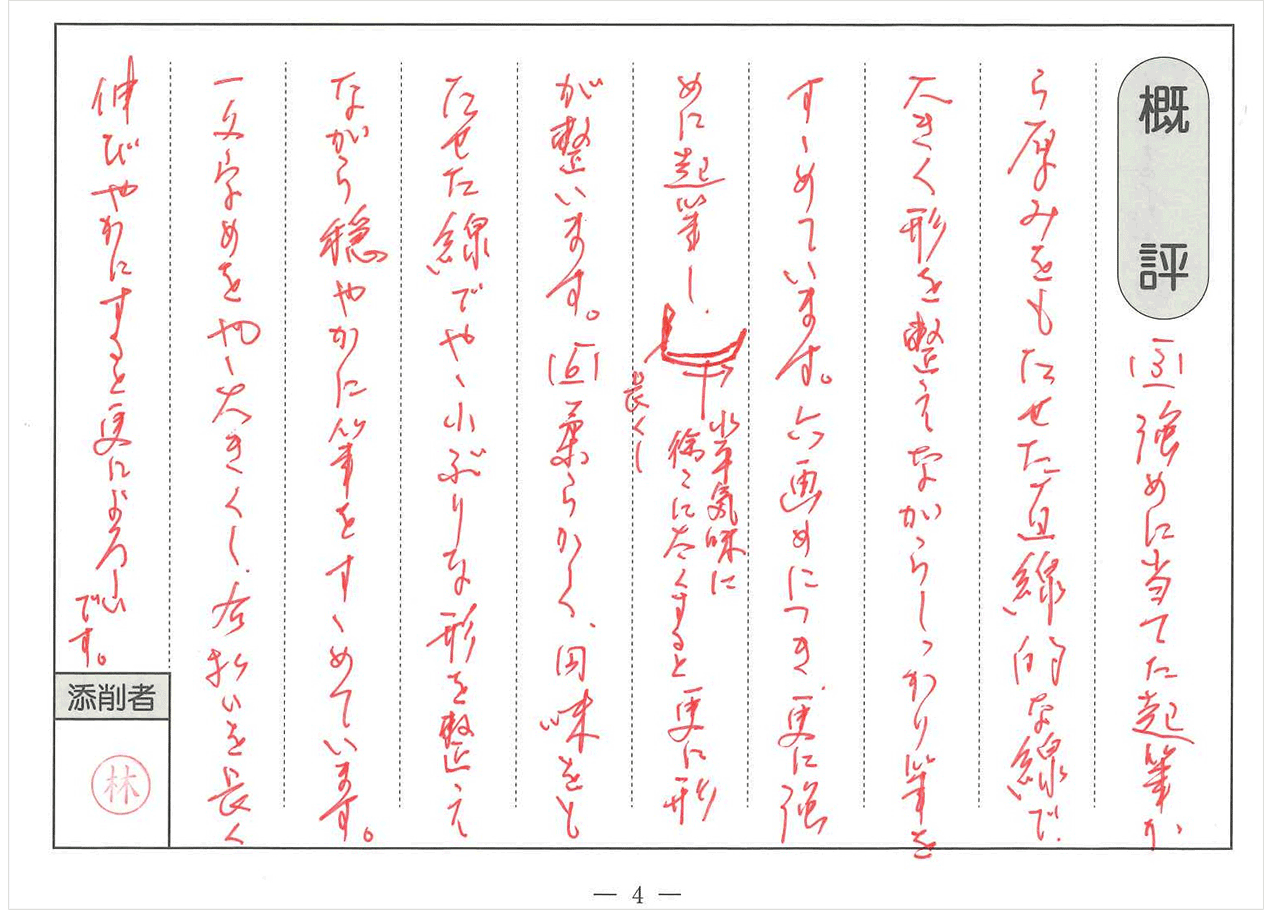 概評
(3)強めに当てた起筆か
ら厚みをもたせた直線的な線で、
大きく形を整えながらしっかり筆を
すゝめています。六画めにつき、更に強
めに起筆し、
長くし
水平気味に
徐々に太くすると更に形
が整います。(6)柔らかく、円味をも
たせた線でやゝ小ぶりな形を整え
ながら穏やかに筆をすゝめています。
一文字めをやゝ大きくし、右払いを長く
伸びやかにすると更によろしい
です。
添削者
林
— 4 —